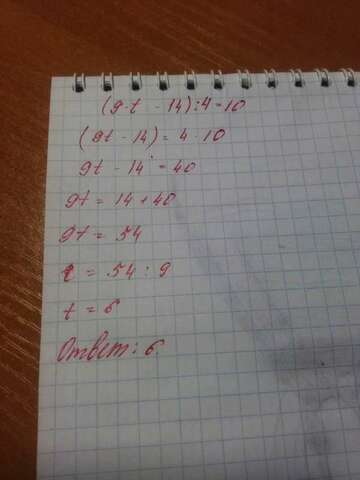 (9·t - 14):4=10
(9t - 14) = 4·10
9t - 14 = 40
9t = 14 + 40
9t = 54
t = 54 : 9
t = 6
Ответ: 6.